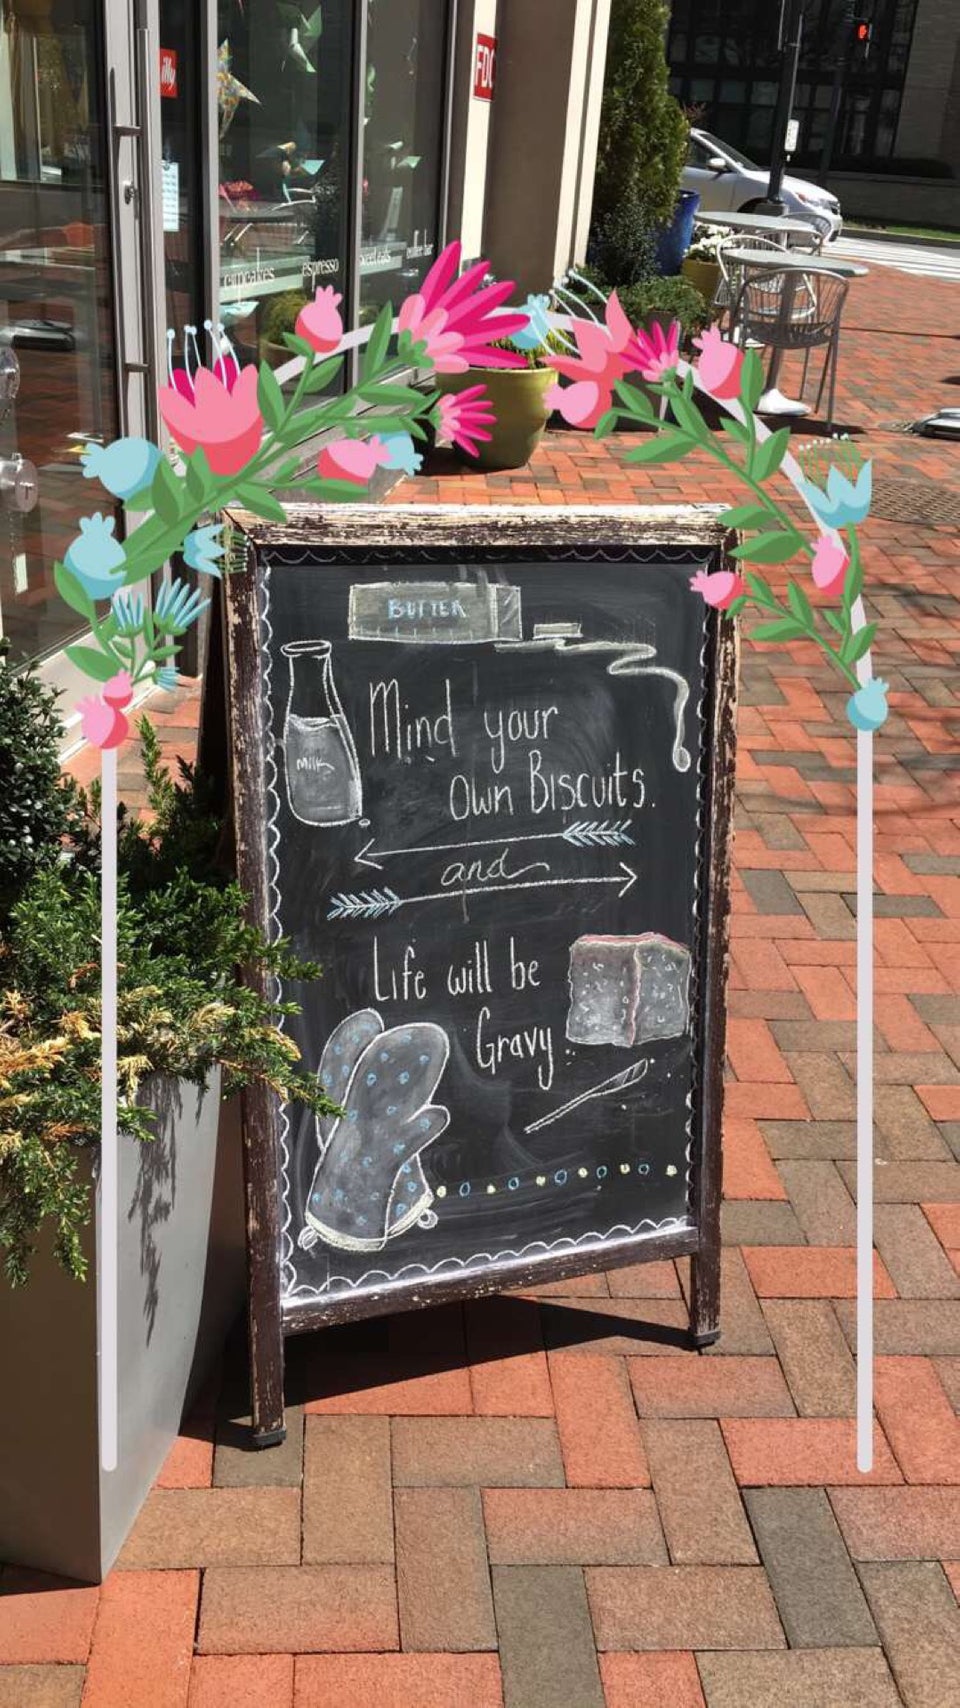 illy
FDC
cupcakes
espresso
sweet eats
coffee bar
BUTTER
MILK
Mind your
Own Biscuits.
and
Life will be
Gravy..